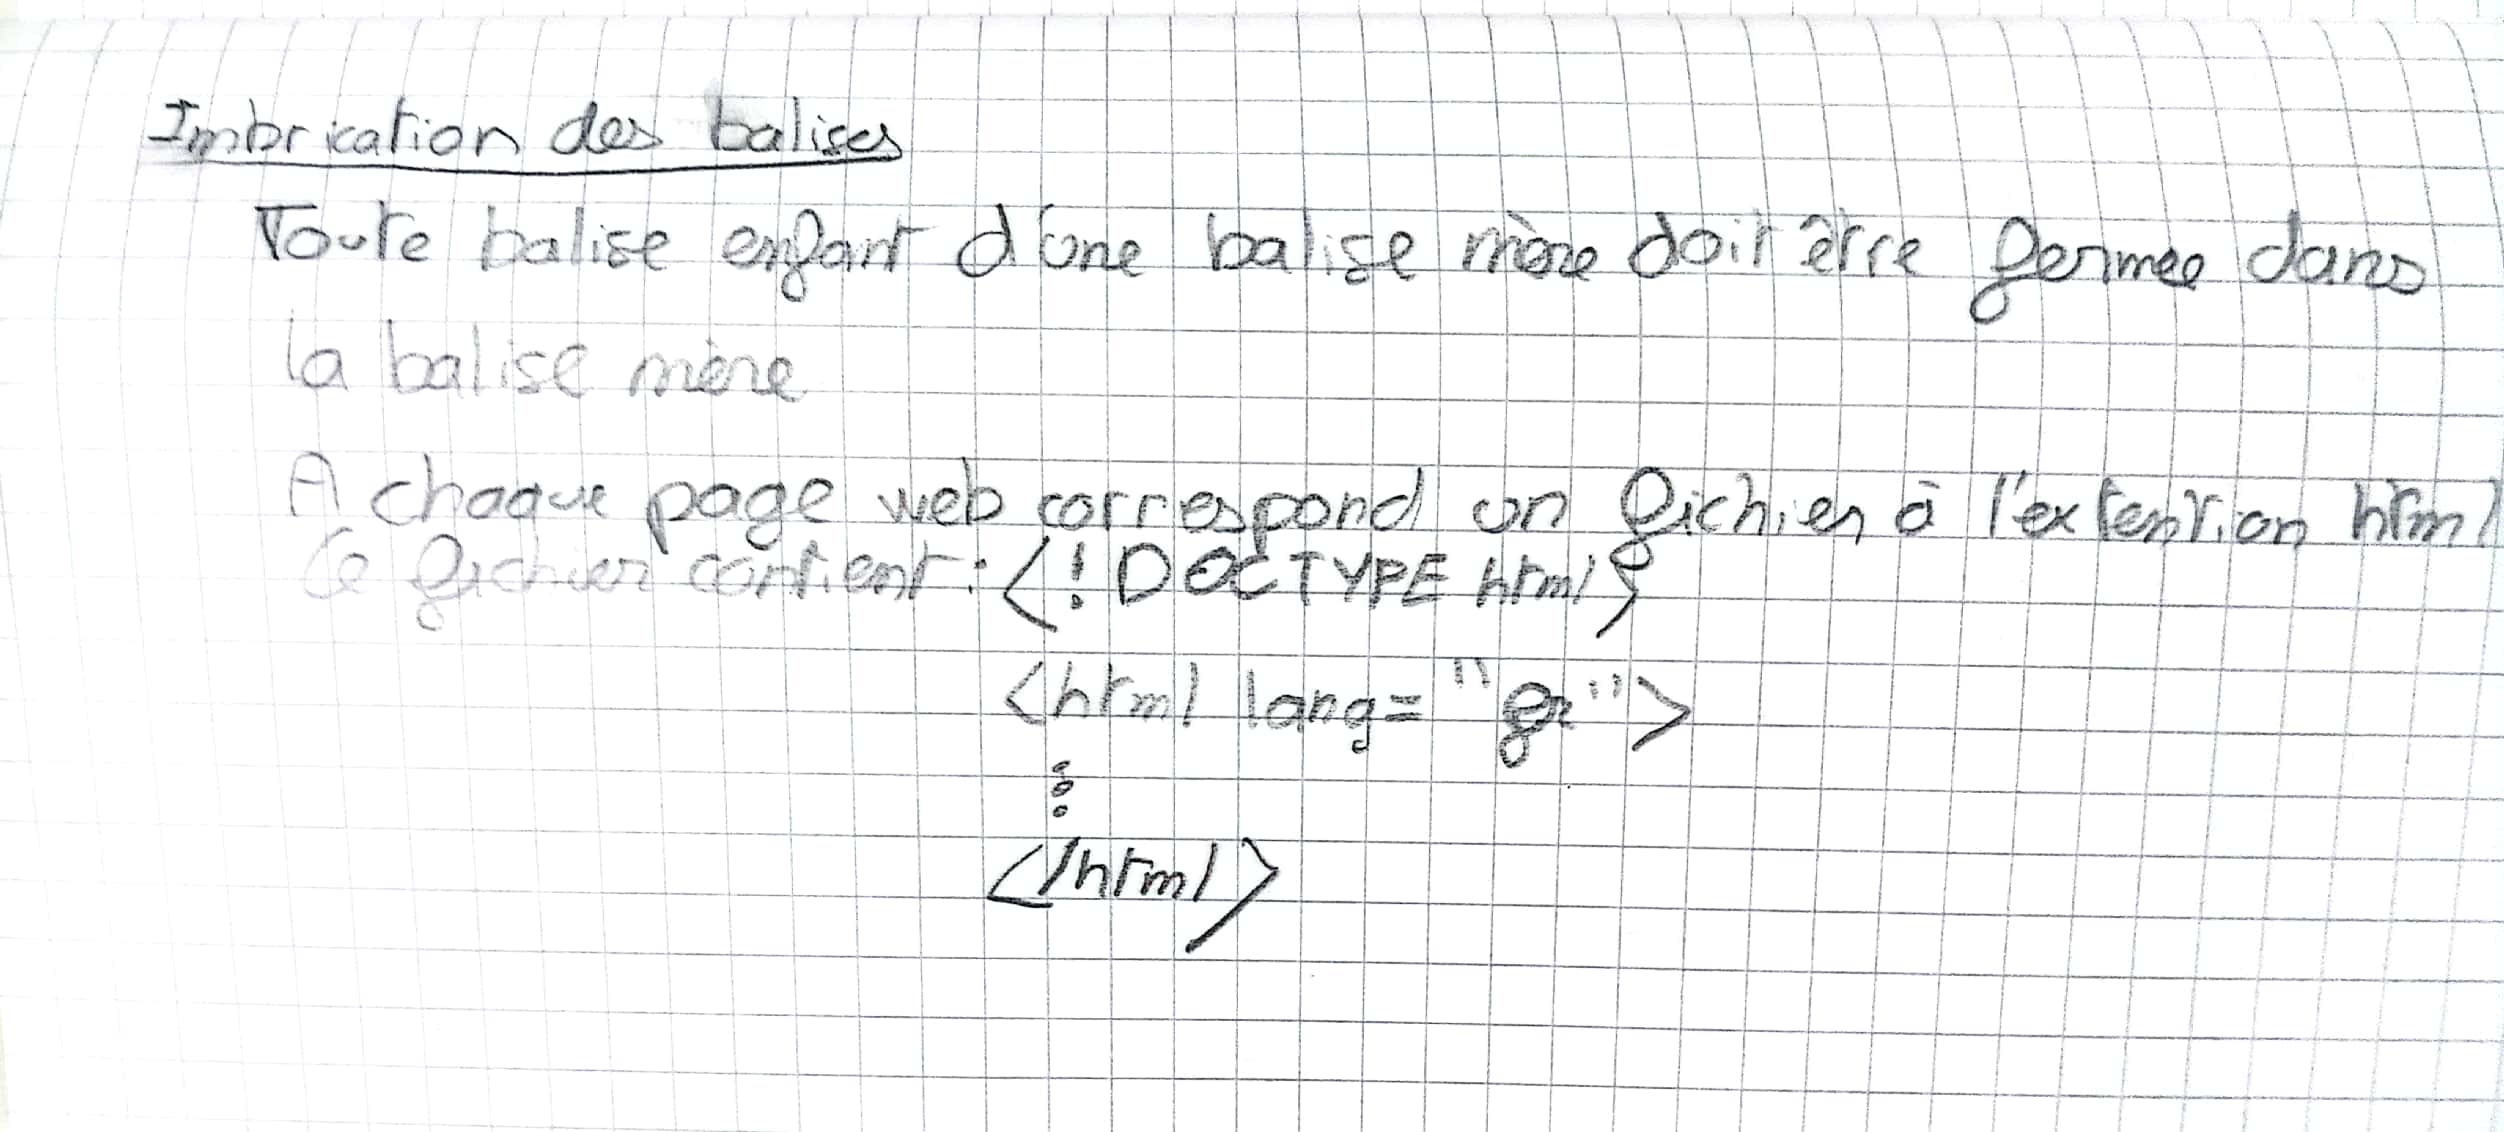 Imbrication des balises
Toute balise enfant d'une balise mère doit être fermee dans
la balise mère
A chaque page web correspond un fichier à l'extention html
Ce fichier contient : <!DOCTYPE html>
<html lang="fr">
⋮
</html>